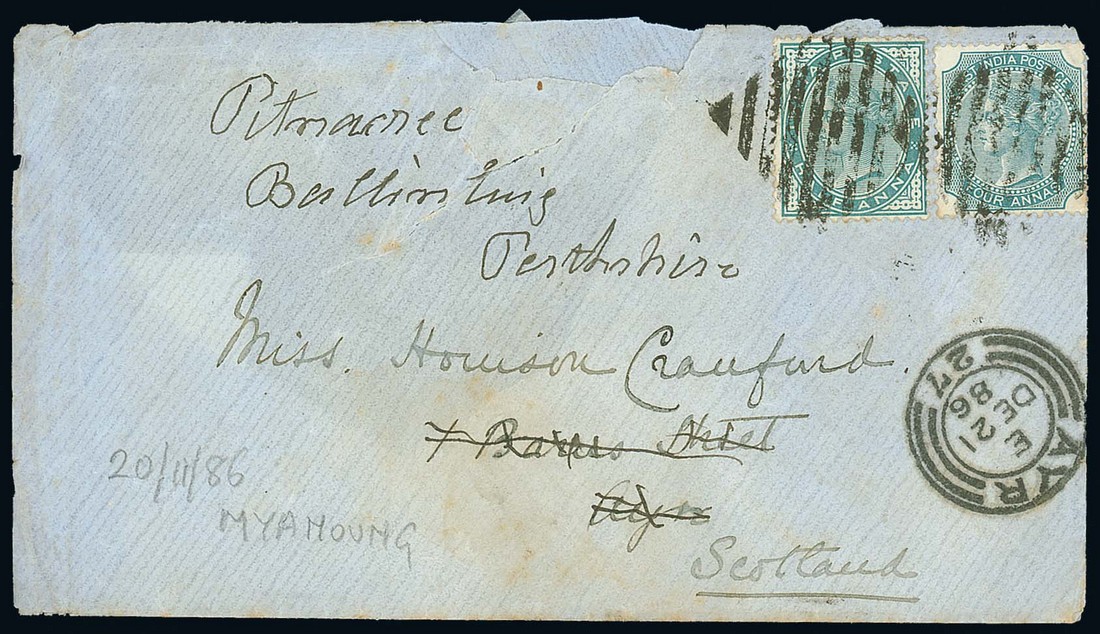 Pitnacree
Ballinluig
Perthshire
Miss. Howison Craufurd.
7 Barns Street
Ayr
Scotland
20/11/86
MYANOUNG
HALF ANNA
INDIA POSTAGE
FOUR ANNAS
AYR
27
E
DE 21
86